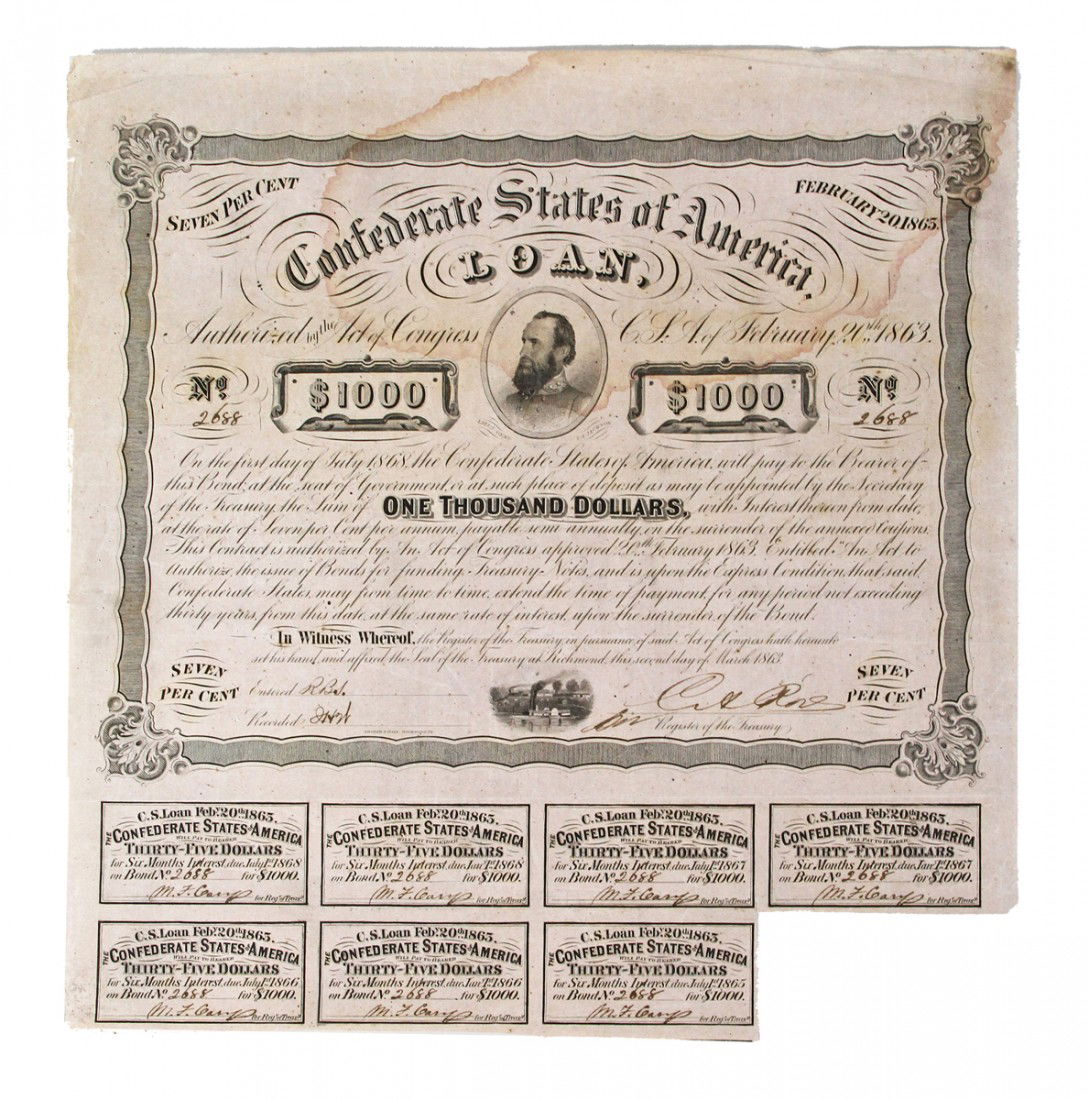 SEVEN PER CENT
FEBRUARY 20, 1863.
Confederate States of America.
LOAN,
Authorized by the Act of Congress C.S.A. of February 20th 1863.
No 2688
$1000
$1000
No 2688
On the first day of July 1868, the Confederate States of America, will pay to the Bearer of
this Bond, at the seat of Government, or at such place of deposit as may be appointed by the Secretary
of the Treasury, the Sum of ONE THOUSAND DOLLARS, with Interest thereon from date,
at the rate of Seven per Cent per annum, payable semi annually, on the surrender of the annexed Coupons.
This Contract is authorized by An Act of Congress approved 20th February 1863, Entitled "An Act to
Authorize, the issue of Bonds for funding Treasury Notes, and is upon the Express Condition, that said
Confederate States, may from time to time, extend the time of payment, for any period not exceeding
thirty years, from this date, at the same rate of interest, upon the surrender of the Bond.
In Witness Whereof, the Register of the Treasury, in pursuance of said Act of Congress hath hereunto
set his hand, and affixed the Seal of the Treasury at Richmond, this second day of March 1863.
SEVEN PER CENT
Entered
Recorded
Register of the Treasury
SEVEN PER CENT
C.S. Loan Feby. 20th 1863.
THE CONFEDERATE STATES OF AMERICA
WILL PAY TO BEARER
THIRTY-FIVE DOLLARS
for Six Months Interest, due July 1st 1868
on Bond No 2688 for $1000.
for Regr of Treasy
C.S. Loan Feby. 20th 1863.
THE CONFEDERATE STATES OF AMERICA
WILL PAY TO BEARER
THIRTY-FIVE DOLLARS
for Six Months Interest, due Jany 1st 1868
on Bond No 2688 for $1000.
for Regr of Treasy
C.S. Loan Feby. 20th 1863.
THE CONFEDERATE STATES OF AMERICA
WILL PAY TO BEARER
THIRTY-FIVE DOLLARS
for Six Months Interest, due July 1st 1867
on Bond No 2688 for $1000.
for Regr of Treasy
C.S. Loan Feby. 20th 1863.
THE CONFEDERATE STATES OF AMERICA
WILL PAY TO BEARER
THIRTY-FIVE DOLLARS
for Six Months Interest, due Jany 1st 1867
on Bond No 2688 for $1000.
for Regr of Treasy
C.S. Loan Feby. 20th 1863.
THE CONFEDERATE STATES OF AMERICA
WILL PAY TO BEARER
THIRTY-FIVE DOLLARS
for Six Months Interest, due July 1st 1866
on Bond No 2688 for $1000.
for Regr of Treasy
C.S. Loan Feby. 20th 1863.
THE CONFEDERATE STATES OF AMERICA
WILL PAY TO BEARER
THIRTY-FIVE DOLLARS
for Six Months Interest, due Jany 1st 1866
on Bond No 2688 for $1000.
for Regr of Treasy
C.S. Loan Feby. 20th 1863.
THE CONFEDERATE STATES OF AMERICA
WILL PAY TO BEARER
THIRTY-FIVE DOLLARS
for Six Months Interest, due July 1st 1865
on Bond No 2688 for $1000.
for Regr of Treasy